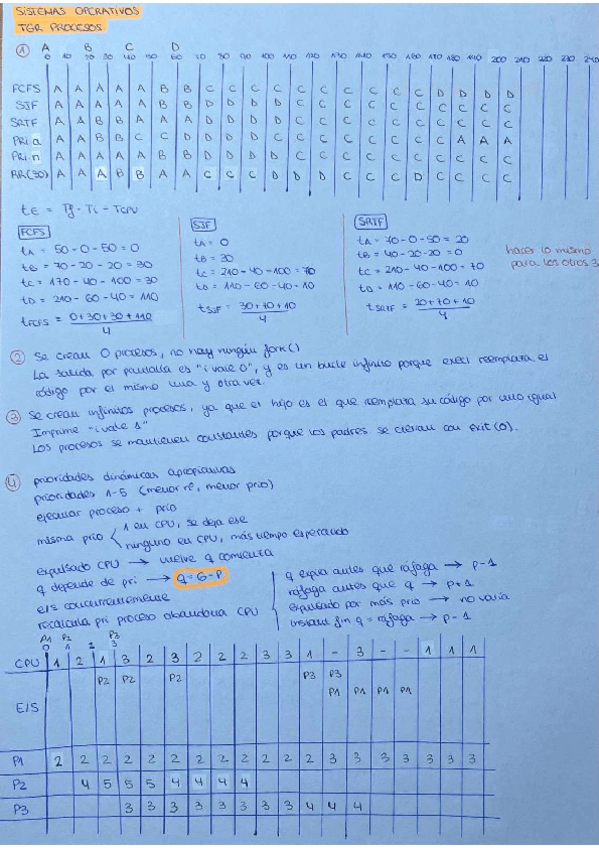 SISTEMAS OPERATIVOS
TGR PROCESOS
① A B C D
0 10 20 30 40 50 60 70 80 90 100 110 120 130 140 150 160 170 180 190 200 210 220 230 240
FCFS A A A A A B B C C C C C C C C C C D D D D
SJF A A A A A B B D D D D C C C C C C C C C C
SRTF A A B B A A A D D D D C C C C C C C C C C
PRI a A A B B C C D D D D C C C C C C C C A A A
PRI n A A A A A B B D D D D C C C C C C C C C C
RR(30) A A A B B A A C C C D D D C C C D C C C C
tE = Tf - Ti - TCPU
FCFS
tA = 50 - 0 - 50 = 0
tB = 70 - 20 - 20 = 30
tC = 170 - 40 - 100 = 30
tD = 210 - 60 - 40 = 110
tFCFS = 0+30+30+110
4
SJF
tA = 0
tB = 30
tC = 210 - 40 - 100 = 70
tD = 110 - 60 - 40 = 10
tSJF = 30+70+10
4
SRTF
tA = 70 - 0 - 50 = 20
tB = 40 - 20 - 20 = 0
tC = 210 - 40 - 100 = 70
tD = 110 - 60 - 40 = 10
tSRTF = 20+70+10
4
hacer lo mismo
para los otros 3
② Se crean 0 procesos, no hay ningún fork()
La salida por pantalla es "i vale 0", y es un bucle infinito porque execl reemplaza el
código por el mismo una y otra vez.
③ Se crean infinitos procesos, ya que el hijo es el que reemplaza su código por uno igual
Imprime "i vale 1"
Los procesos se mantienen constantes porque los padres se cierran con exit(0).
④ prioridades dinámicas apropiativas
prioridades 1-5 (menor nº, menor prio)
ejecutar proceso + prio
misma prio
1 en CPU, se deja ese
ninguno en CPU, más tiempo esperando
expulsado CPU → vuelve q comienza
q depende de pri → q = 6 - P
e/s concurrentemente
recalcula pri proceso abandona CPU
q expira antes que ráfaga → p-1
ráfaga antes que q → p+1
expulsado por más prio → no varía
instant fin q = ráfaga → p-1
P1 P2 P3
0 1 2 3
CPU 1 2 1 3 2 3 2 2 2 3 3 1 - 3 - - 1 1 1
P2 P2 P2 P3 P3
E/S P1 P1 P1 P1
P1 2 2 2 2 2 2 2 2 2 2 2 2 3 3 3 3 3 3 3
P2 4 5 5 5 4 4 4 4
P3 3 3 3 3 3 3 3 3 4 4 4